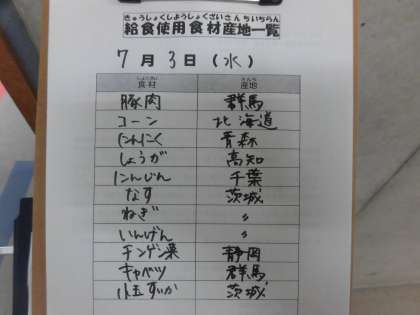 きゅうしょくしようしょくざいさんちいちらん
給食使用食材産地一覧
7月3日(水)
しょくざい さんち
食材 産地
豚肉 群馬
コーン 北海道
にんにく 青森
しょうが 高知
にんじん 千葉
なす 茨城
ねぎ 〃
いんげん 〃
チンゲン菜 静岡
キャベツ 群馬
小玉すいか 茨城